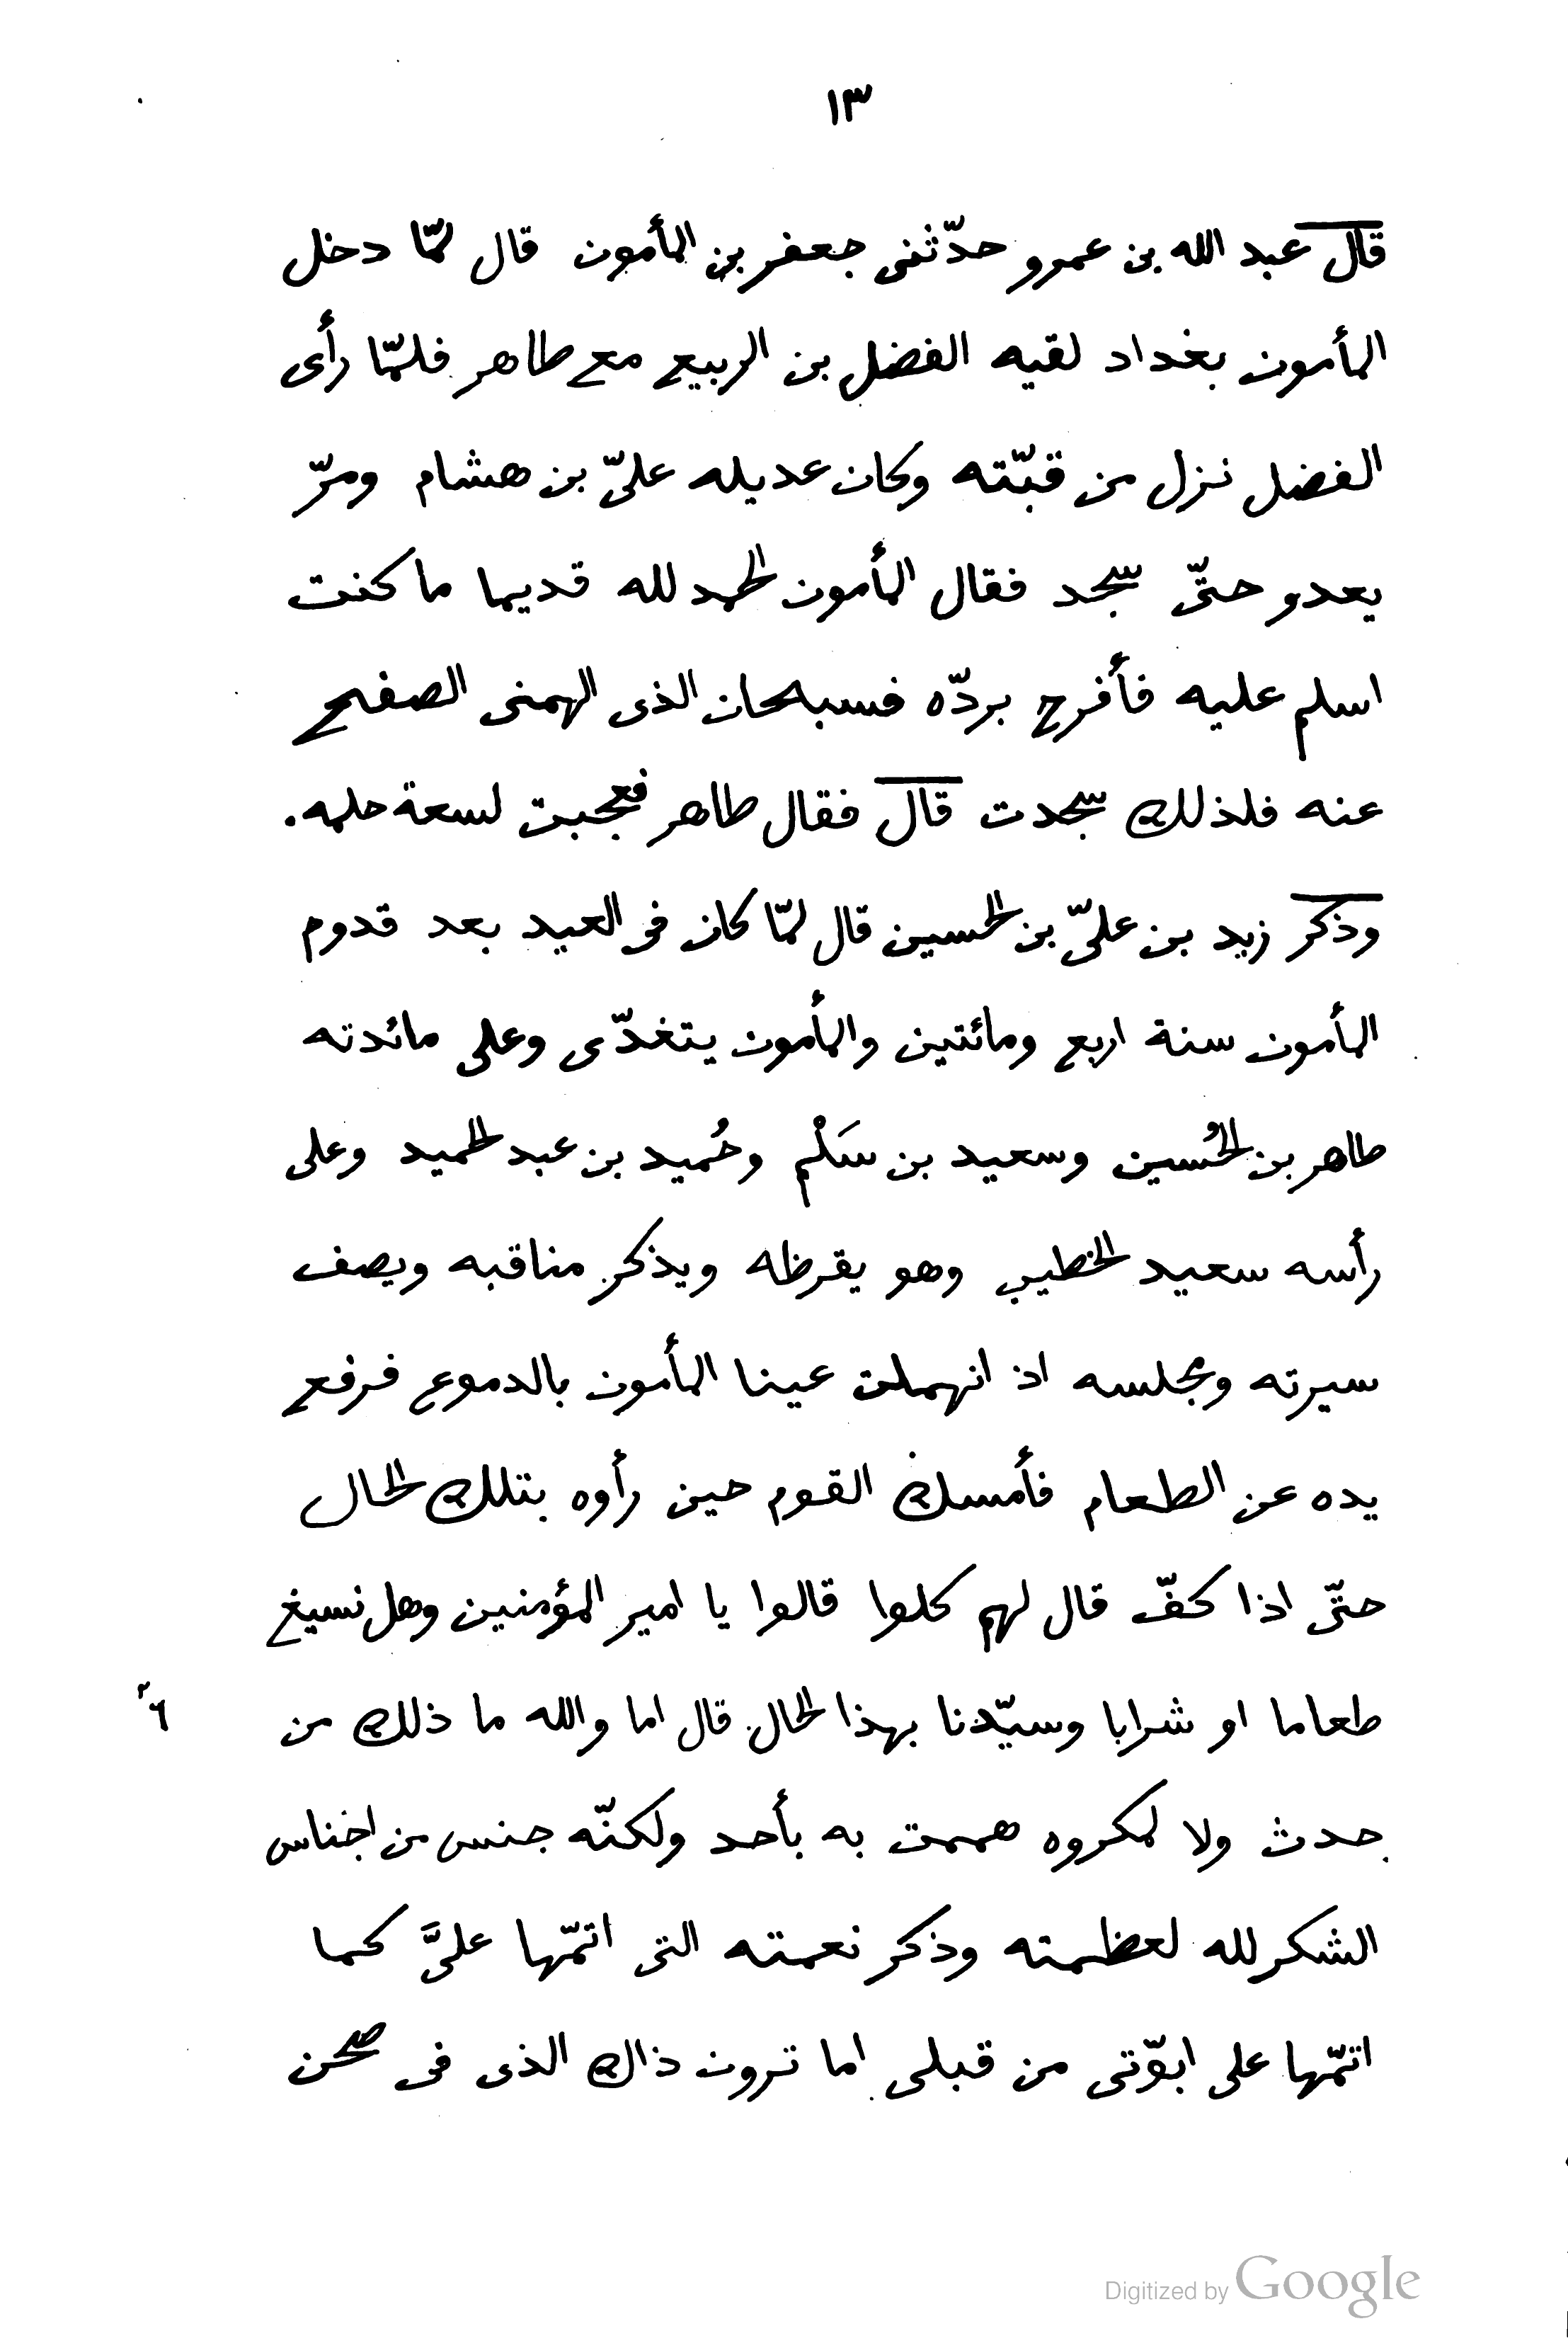 ١٣
قال عبد الله بن عمرو حدّثنى جعفر بن المأمون قال لمّا دخل
المأمون بغداد لقيه الفضل بن الربيع مع طاهر فلمّا رأى
الفضل نزل من قبّته وكان عديله علىّ بن هشام ومرّ
يعدو حتّى سجد فقال المأمون الحمد لله قديما ما كنت
اسلم عليه فأفرح بردّه فسبحان الذى الهمنى الصفح
عنه فلذلك سجدت قال فقال طاهر فعجبت لسعة حلمه.
وذكر زيد بن علىّ بن الحسين قال لمّا كان فى العيد بعد قدوم
المأمون سنة اربع ومائتين والمأمون يتغدّى وعلى مائدته
طاهر بن الحُسين وسعيد بن سَلْم وحُميد بن عبد الحميد وعلى
رأسه سعيد الخطيب وهو يقرظه ويذكر مناقبه ويصف
سيرته ومجلسه اذ انهملت عينا المأمون بالدموع فرفع
يده عن الطعام فأمسك القوم حين رأوه بتلك الحال
حتّى اذا كفّ قال لهم كلوا قالوا يا امير المؤمنين وهل نسيغ
طعاما او شرابا وسيّدنا بهذا الحال قال اما والله ما ذلك من
حدث ولا لمكروه هممت به بأحد ولكنّه جنس من اجناس
الشكر لله لعظمته وذكر نعمته التى اتمّها علىَّ كما
اتمّها على ابوّتى من قبلى اما ترون ذاك الذى فى صحن
Digitized by Google